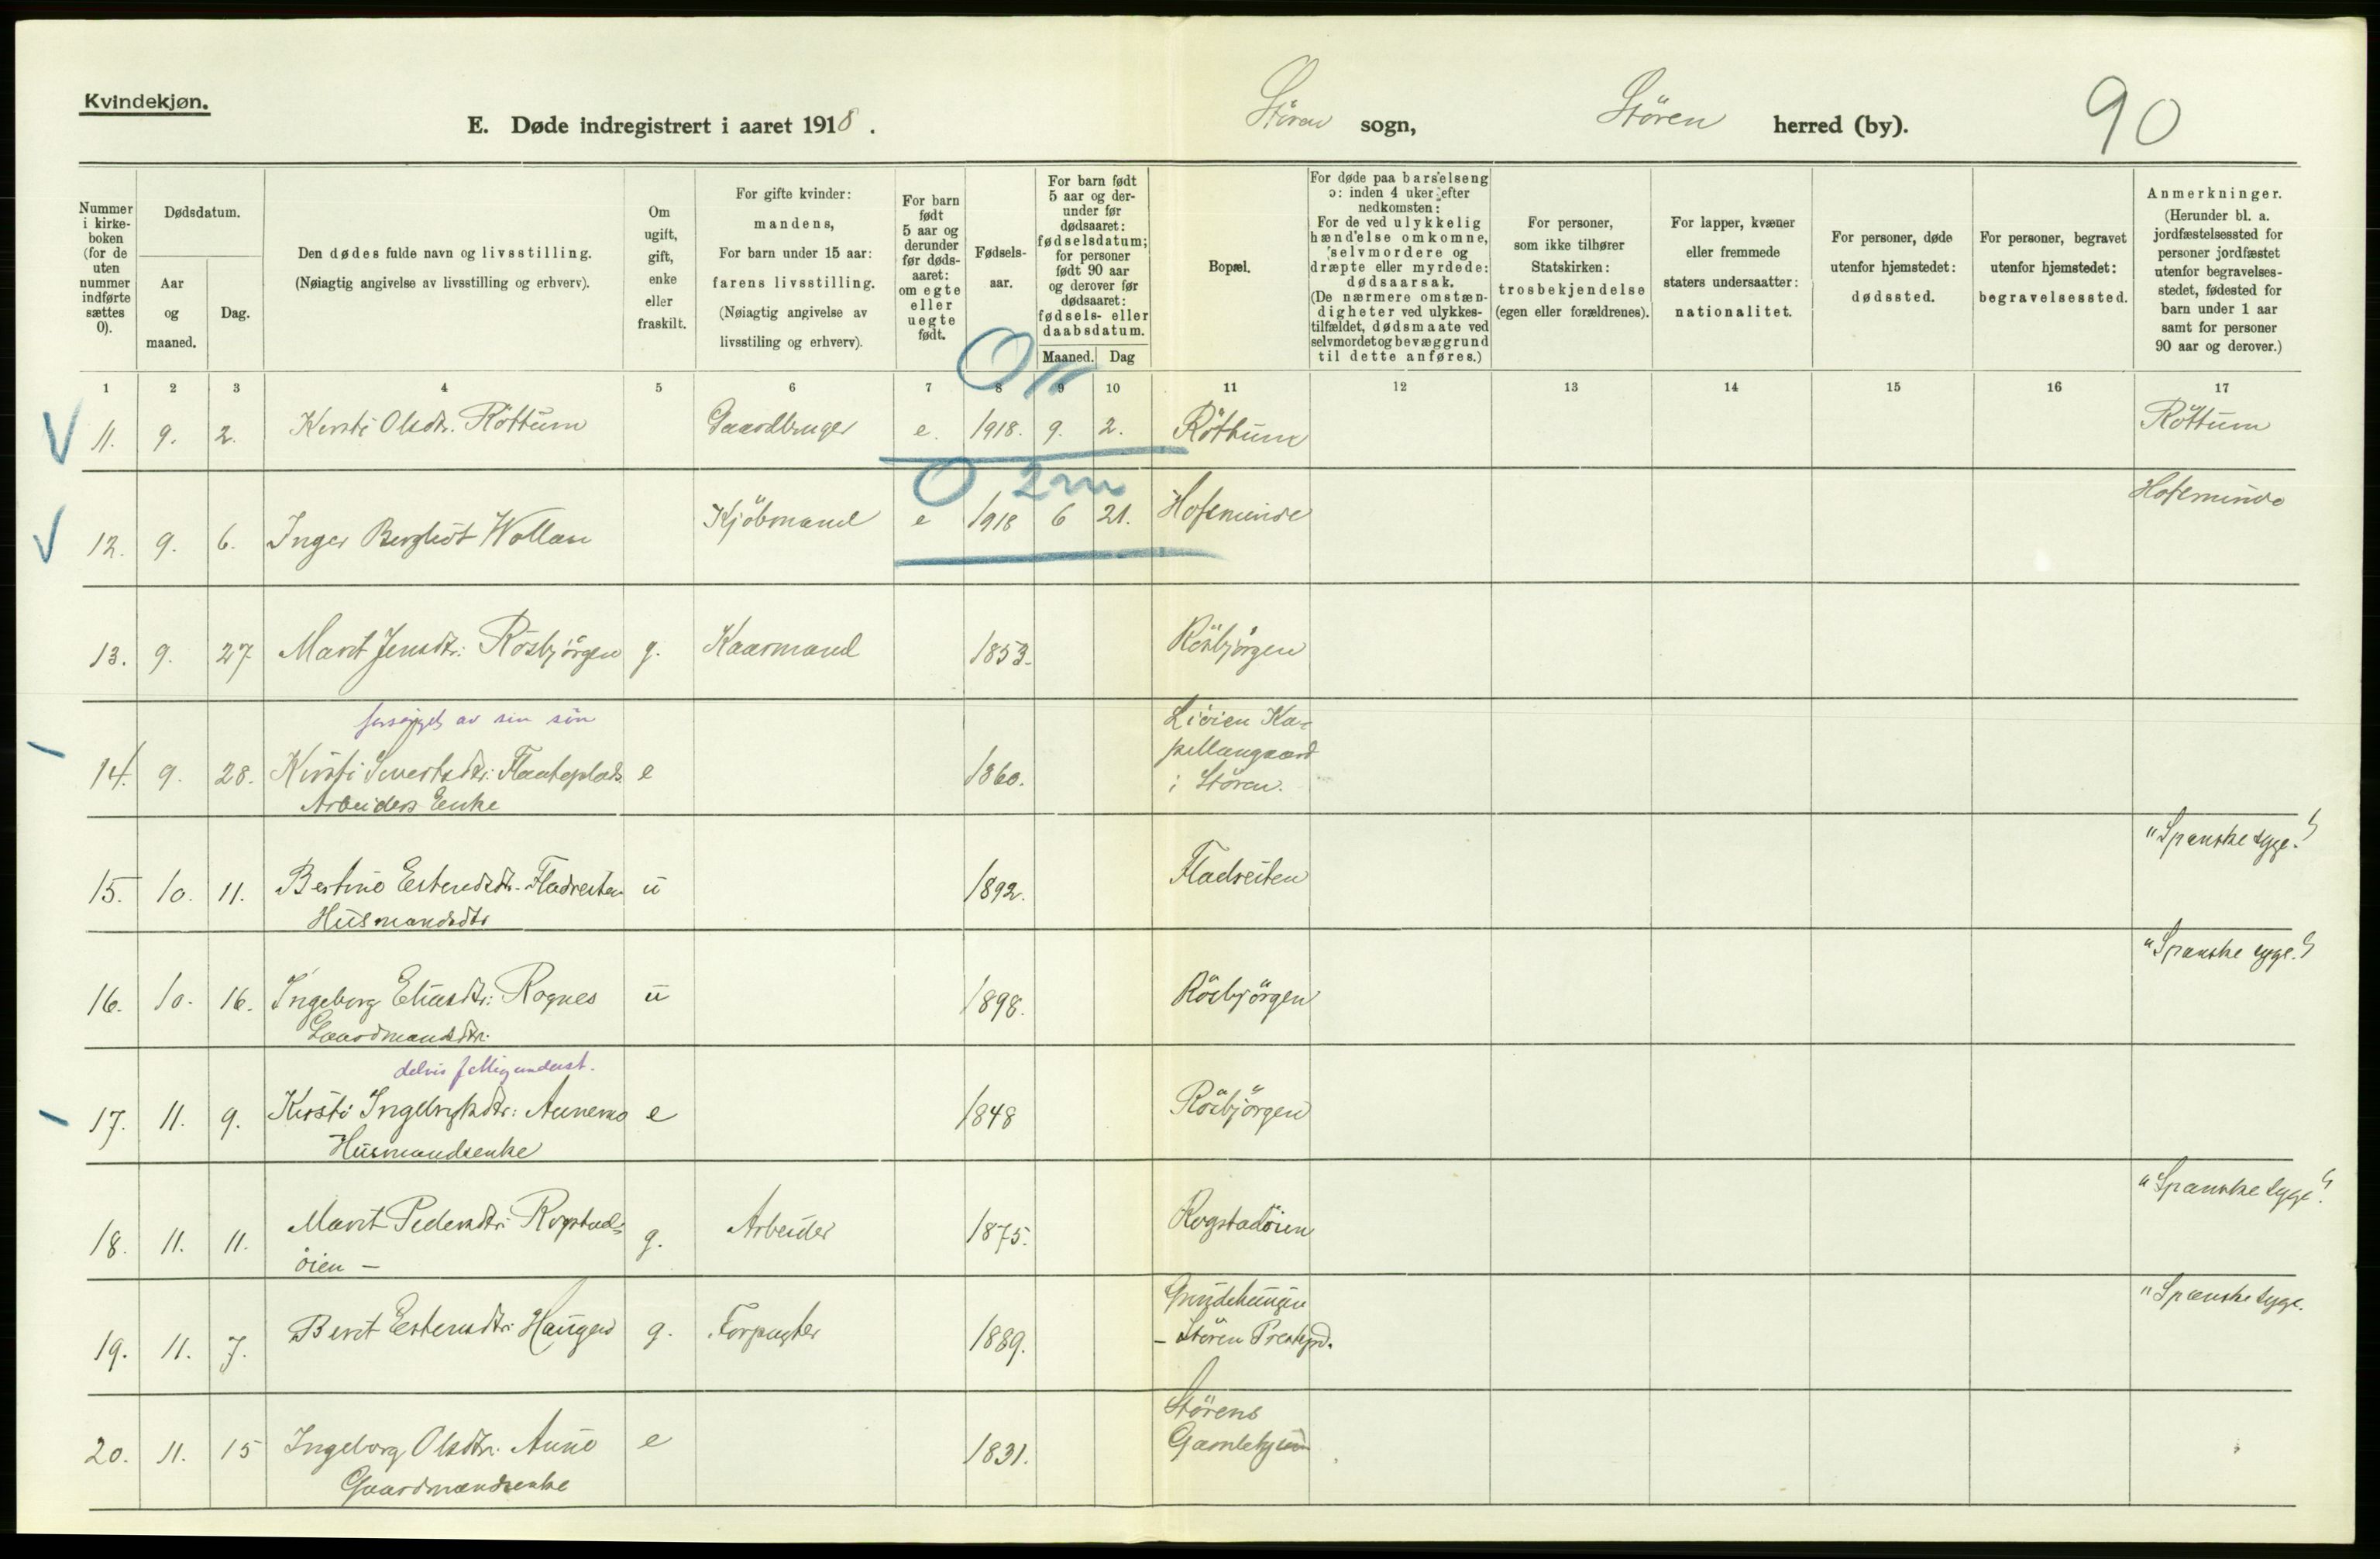 Kvindekjøn.
E. Døde indregistrert i aaret 1918.
Stören sogn, Stören herred (by). 90
Nummer i kirkeboken (for de uten nummer indførte sættes 0).
Dødsdatum.
Aar og maaned.
Dag.
Den dødes fulde navn og livsstilling.
(Nøiagtig angivelse av livsstilling og erhverv).
Om ugift, gift, enke eller fraskilt.
For gifte kvinder: mandens,
For barn under 15 aar: farens livsstilling.
(Nøiagtig angivelse av livsstiling og erhverv).
For barn født 5 aar og derunder før dødsaaret: om egte eller uegte født.
Fødselsaar.
For barn født 5 aar og derunder før dødsaaret: fødselsdatum; for personer født 90 aar og derover før dødsaaret: fødsels- eller daabsdatum.
Maaned. Dag
Bopæl.
For døde paa barselseng ɔ: inden 4 uker efter nedkomsten:
For de ved ulykkelig hændelse omkomne, selvmordere og dræpte eller myrdede: dødsaarsak.
(De nærmere omstændigheter ved ulykkestilfældet, dødsmaate ved selvmordet og bevæggrund til dette anføres.)
For personer, som ikke tilhører Statskirken: trosbekjendelse (egen eller forældrenes).
For lapper, kvæner eller fremmede staters undersaatter: nationalitet.
For personer, døde utenfor hjemstedet: dødssted.
For personer, begravet utenfor hjemstedet: begravelsessted.
Anmerkninger.
(Herunder bl. a. jordfæstelsessted for personer jordfæstet utenfor begravelsesstedet, fødested for barn under 1 aar samt for personer 90 aar og derover.)
1 2 3 4 5 6 7 8 9 10 11 12 13 14 15 16 17
11. 9. 2. Kirsti Olsdtr. Röttum Gaardbruger e. 1918. 9. 2. Röttum Röttum
0 2m
12. 9. 6. Inger Bergliot Wollan Kjöbmand e 1918 6 21. Hofsminde Hofsminde
13. 9. 27 Marit Jensdtr: Rösbjörgen g. Kaarmand 1853. Rösbjörgen
forsörget av sin sön
14. 9. 28. Kirsti Sivertsdtr: Flaateplads e 1860. Liöien Kapellangaard i Stören.
Arbeiders Enke
15. 10. 11. Bertine Estensdtr. Fladreiten u 1892. Fladreiten "Spanske syge."
Husmandsdtr
16. 10. 16. Ingeborg Eliasdtr: Rognes u 1898. Rösbjörgen "Spanske syge."
Gaardmandsdtr.
delvis fattigunderst.
17. 11. 9. Kirsti Ingebrigtsdtr: Aunemo e 1848 Rösbjörgen
Husmandsenke
18. 11. 11. Marit Pedersdtr: Rogstadöien – g. Arbeider 1875. Rogstadöien "Spanske syge".
19. 11. 7. Berit Estensdtr: Haugen g. Forpagter 1889. Grindehaugen – Stören Prestegd. "Spanske syge.
20. 11. 15 Ingeborg Olsdtr. Aune e 1831. Störens
Gaardmandsenke